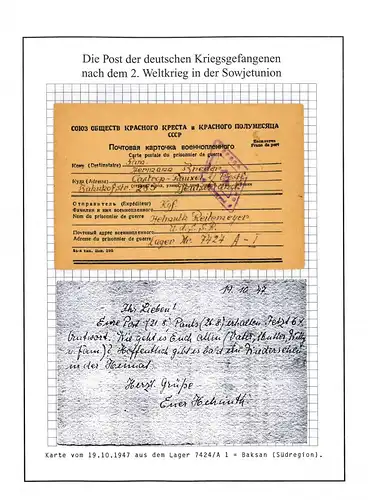 Die Post der deutschen Kriegsgefangenen
nach dem 2. Weltkrieg in der Sowjetunion
СОЮЗ ОБЩЕСТВ КРАСНОГО КРЕСТА и КРАСНОГО ПОЛУМЕСЯЦА
СССР
Почтовая карточка военнопленного
Carte postale du prisonnier de guerre
Бесплатно
Franc de port
Кому (Destinataire)
Hermann
Куда (Adresse) Castrop-Rauxel
Bahnhofstr.
Отправитель (Expéditeur) Kgf.
Фамилия и имя военнопленного
Nom du prisonnier de guerre Helmuth Reitemeyer
Почтовый адрес военнопленного
Adresse du prisonnier de guerre Lager Nr. 7424 A-I
19. 10. 47
Ihr Lieben!
Eure Post (21.8. Pauls (26.8) erhalten. Jetzt
Antwort. Wie geht es Euch allen (Vater, Mutter, Willy
u. fam.)? Hoffentlich gibt es bald ein Wiedersehen
in der Heimat.
Herzl. Grüße
Euer Helmuth.
Karte vom 19.10.1947 aus dem Lager 7424/A 1 = Baksan (Südregion).